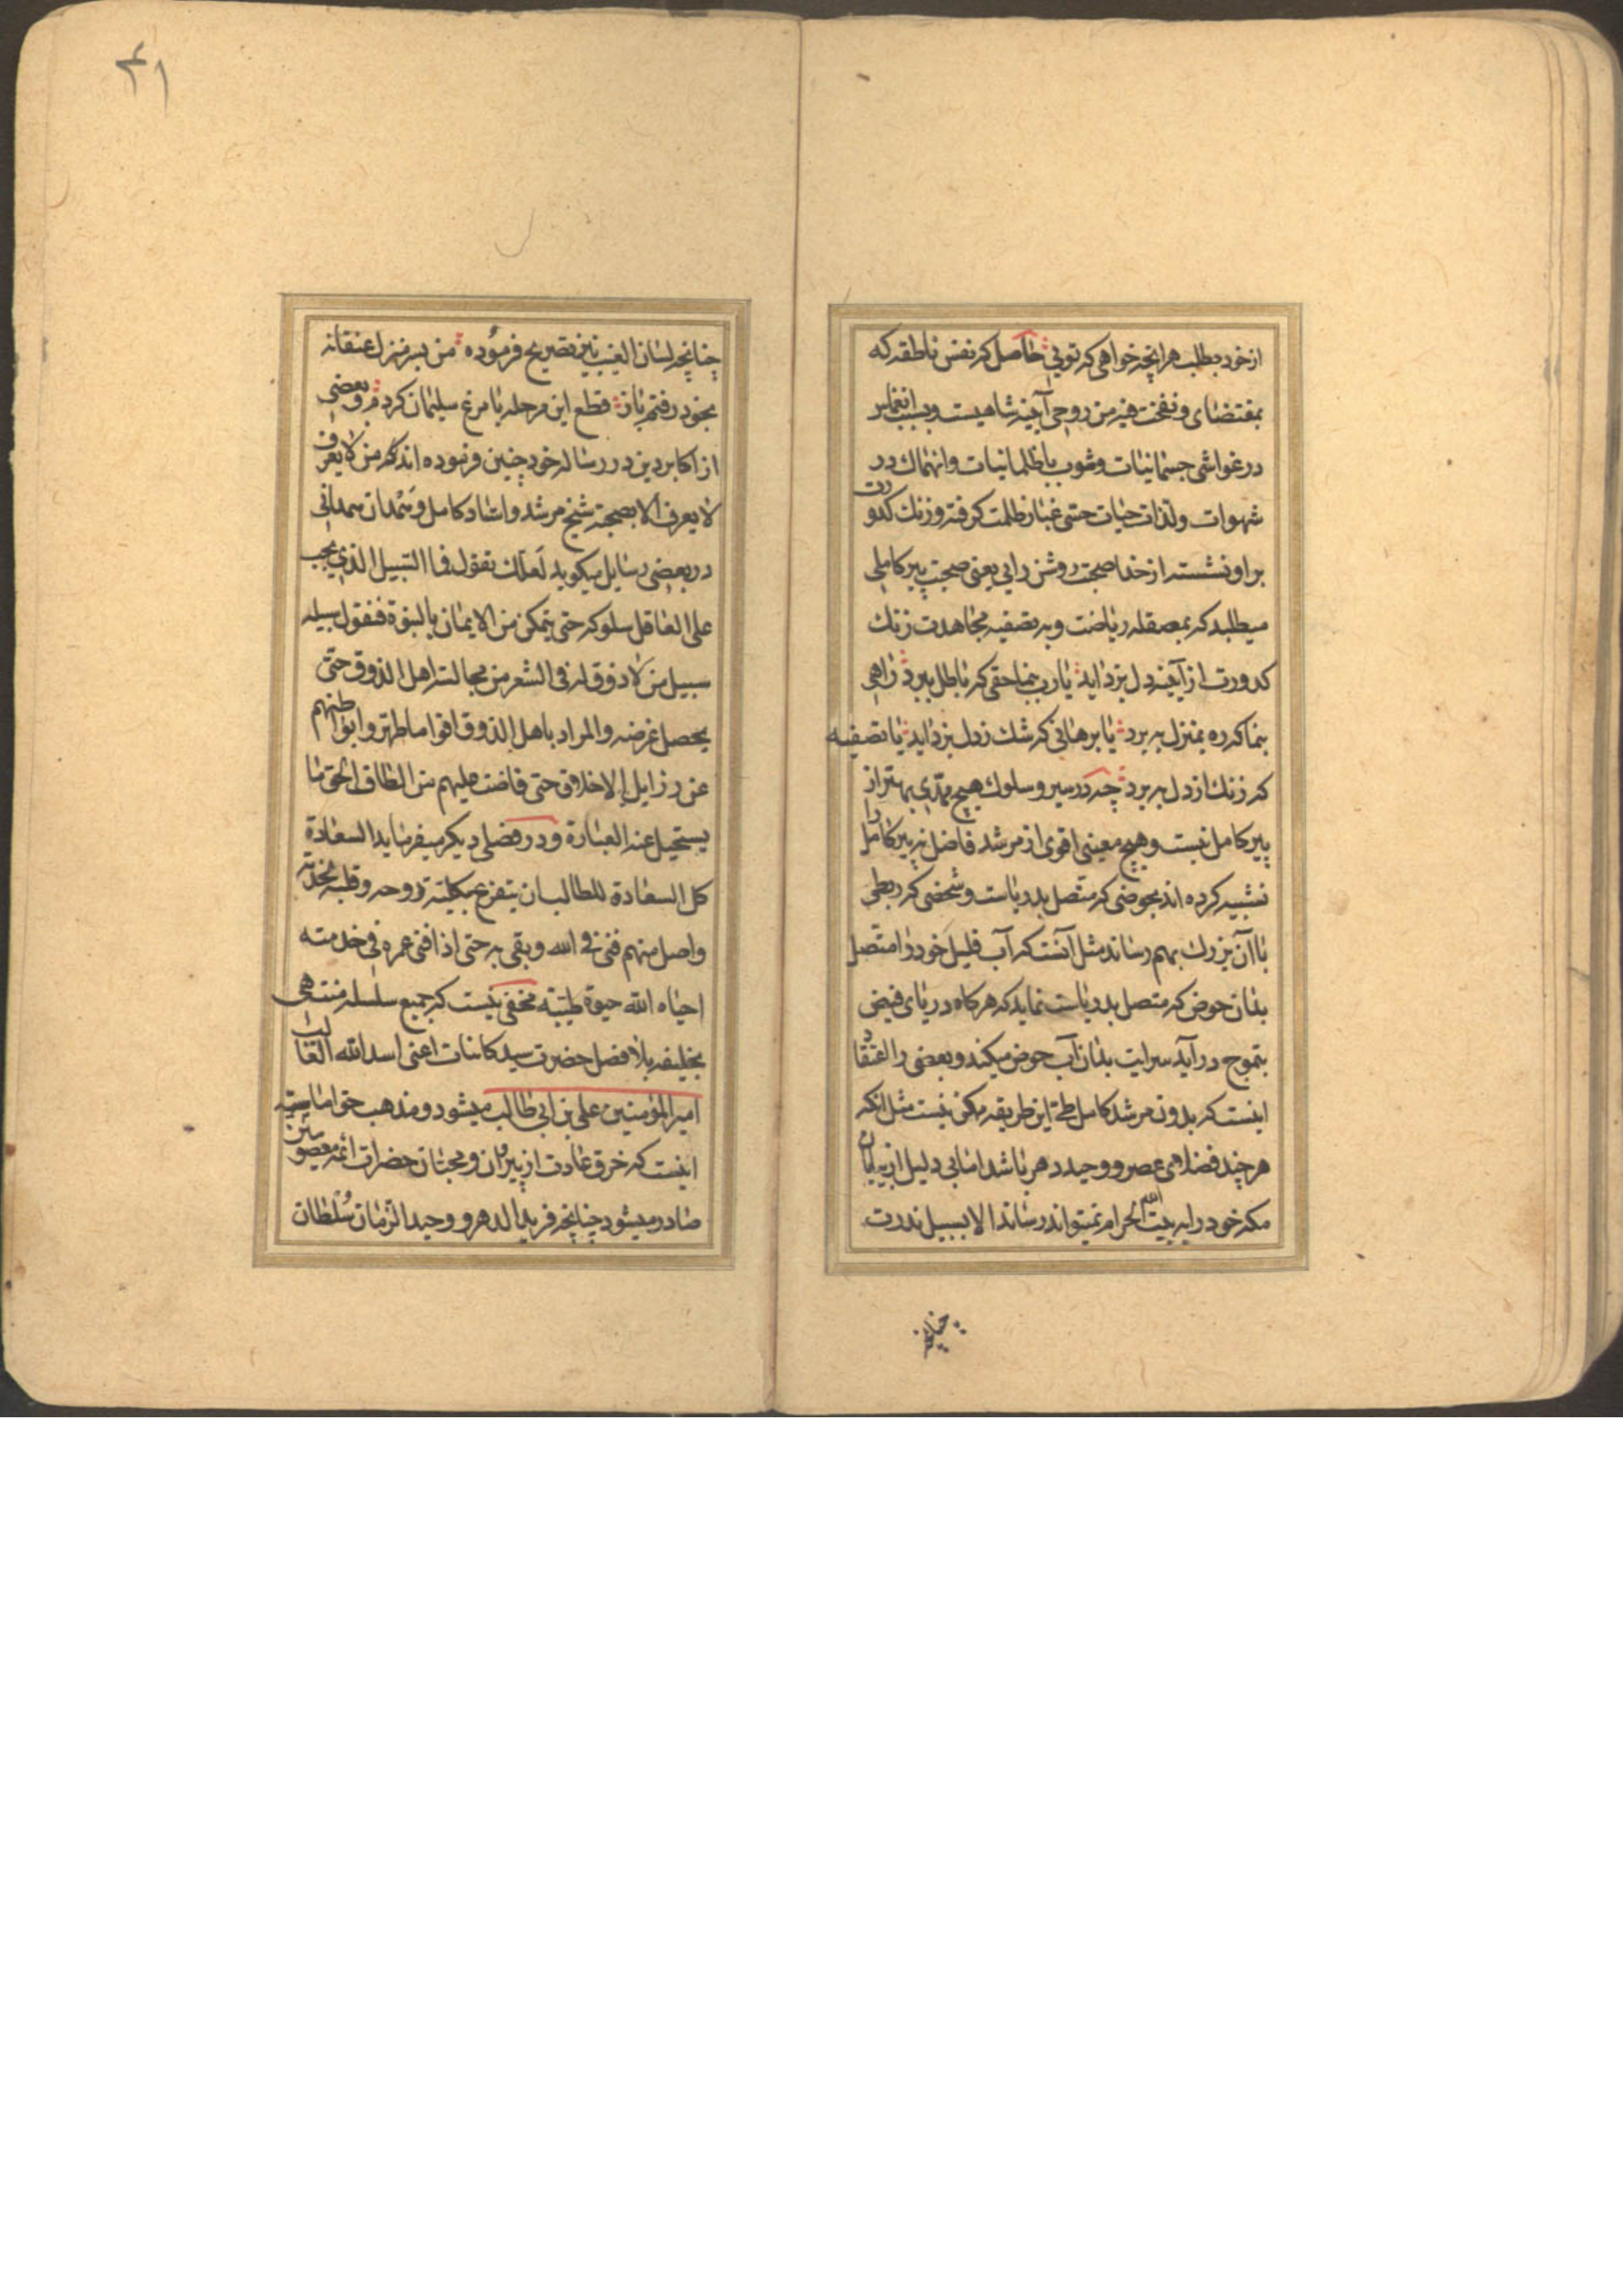 از خود بطلب هر انچه خواهی که توئی حاصل که نفس ناطقه که
بمقتضای و نفخت فیه من روحی آیینه شاهیست و بسبب انغمار
در غواشی جسمانیات و مشوب با ظلمانیات و انهماك در
شهوات و لذات حیات حسی غبار ظلمت گرفته و زنك کدورت
بر او نشسته از خدا صحبت روشن رایی یعنی صحبت پیر کاملی
میطلبد که بمصقله ریاضت و به تصفیه مجاهدت زنك
کدورت از آینه دل بزداید یا رب بنما حقی که باطل ببرد راهی
بنما که ره بمنزل ببرد یا برهانی که شك ز دل بزداید یا تصفیه
که زنك از دل ببرد چه در سیر و سلوك هیچ ممدی بهتر از
پیر کامل نیست و هیچ معینی اقوی از مرشد فاضل نه پیر کامل را
تشبیه کرده اند بحوضی که متصل بدریاست و شخصی که ربطی
با آن بزرك بهم رساند مثل آنست که آب قلیل خود را متصل
بدان حوض که متصل بدریاست نماید که هر کاه دریای فیض
بتموج در آید سرایت بدان آب حوض میکند و بعضی را اعتقاد
اینست که بدون مرشد کامل طی این طریقه ممکن نیست مثل انکه
هر چند فضلای عصر و وحید دهر باشد اما بی دلیل از بیابان
مکه خود را به بیت الله الحرام نمیتواند رساند الا بسبیل ندرت
چنانچه
۴۱
چنانچه لسان الغیب نیز تصریح فرموده من بسر منزل عنقا نه
بخود رفتم باز قطع این مرحله با مرغ سلیمان کردم و بعضی
از اکابر دین در رساله خود چنین فرموده اند که من لا یعرف
لا یعرف الا بصحبة شیخ مرشد و استاد کامل و همدان همدانی
در بعضی رسایل میکوید لعلك تقول فما السبیل الذی یجب
علی العاقل سلوکه حتی یتمکن من الایمان بالنبوة فنقول سبیله
سبیل من لا ذوق له فی الشعر من مجالسة اهل الذوق حتی
یحصل غرضه والمراد باهل الذوق اقواما طهروا بواطنهم
عن رذایل الاخلاق حتی فاضت علیهم من الطاف الحق ما
یستحیل عنه العبارة و در فصلی دیکر میفرماید السعادة
کل السعادة للطالب ان یتفرغ بکلیته و روحه و قلبه لخدمة
واصل منهم فنی فی الله و بقی به حتی اذا افنی عمره فی خدمته
احیاه الله حیوة طیبة مخفی نیست که جمیع سلسله منتهی
بخلیفه بلا فصل حضرت سید کاینات اعنی اسد الله الغالب
امیر المؤمنین علی بن ابی طالب میشود و مذهب حق امامیه
اینست که خرق عادت از پیران و محبان حضرات ائمه معصومین
صادر میشود چنانچه فرید الدهر و وحید الزمان سلطان